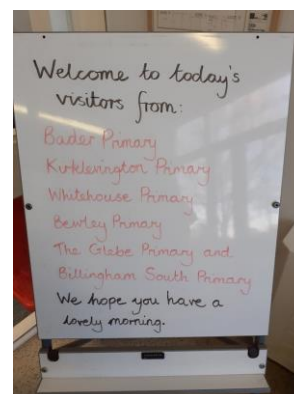 Welcome to today's
visitors from:
Bader Primary
Kirklevington Primary
Whitehouse Primary
Bewley Primary
The Glebe Primary and
Billingham South Primary
We hope you have a
lovely morning.